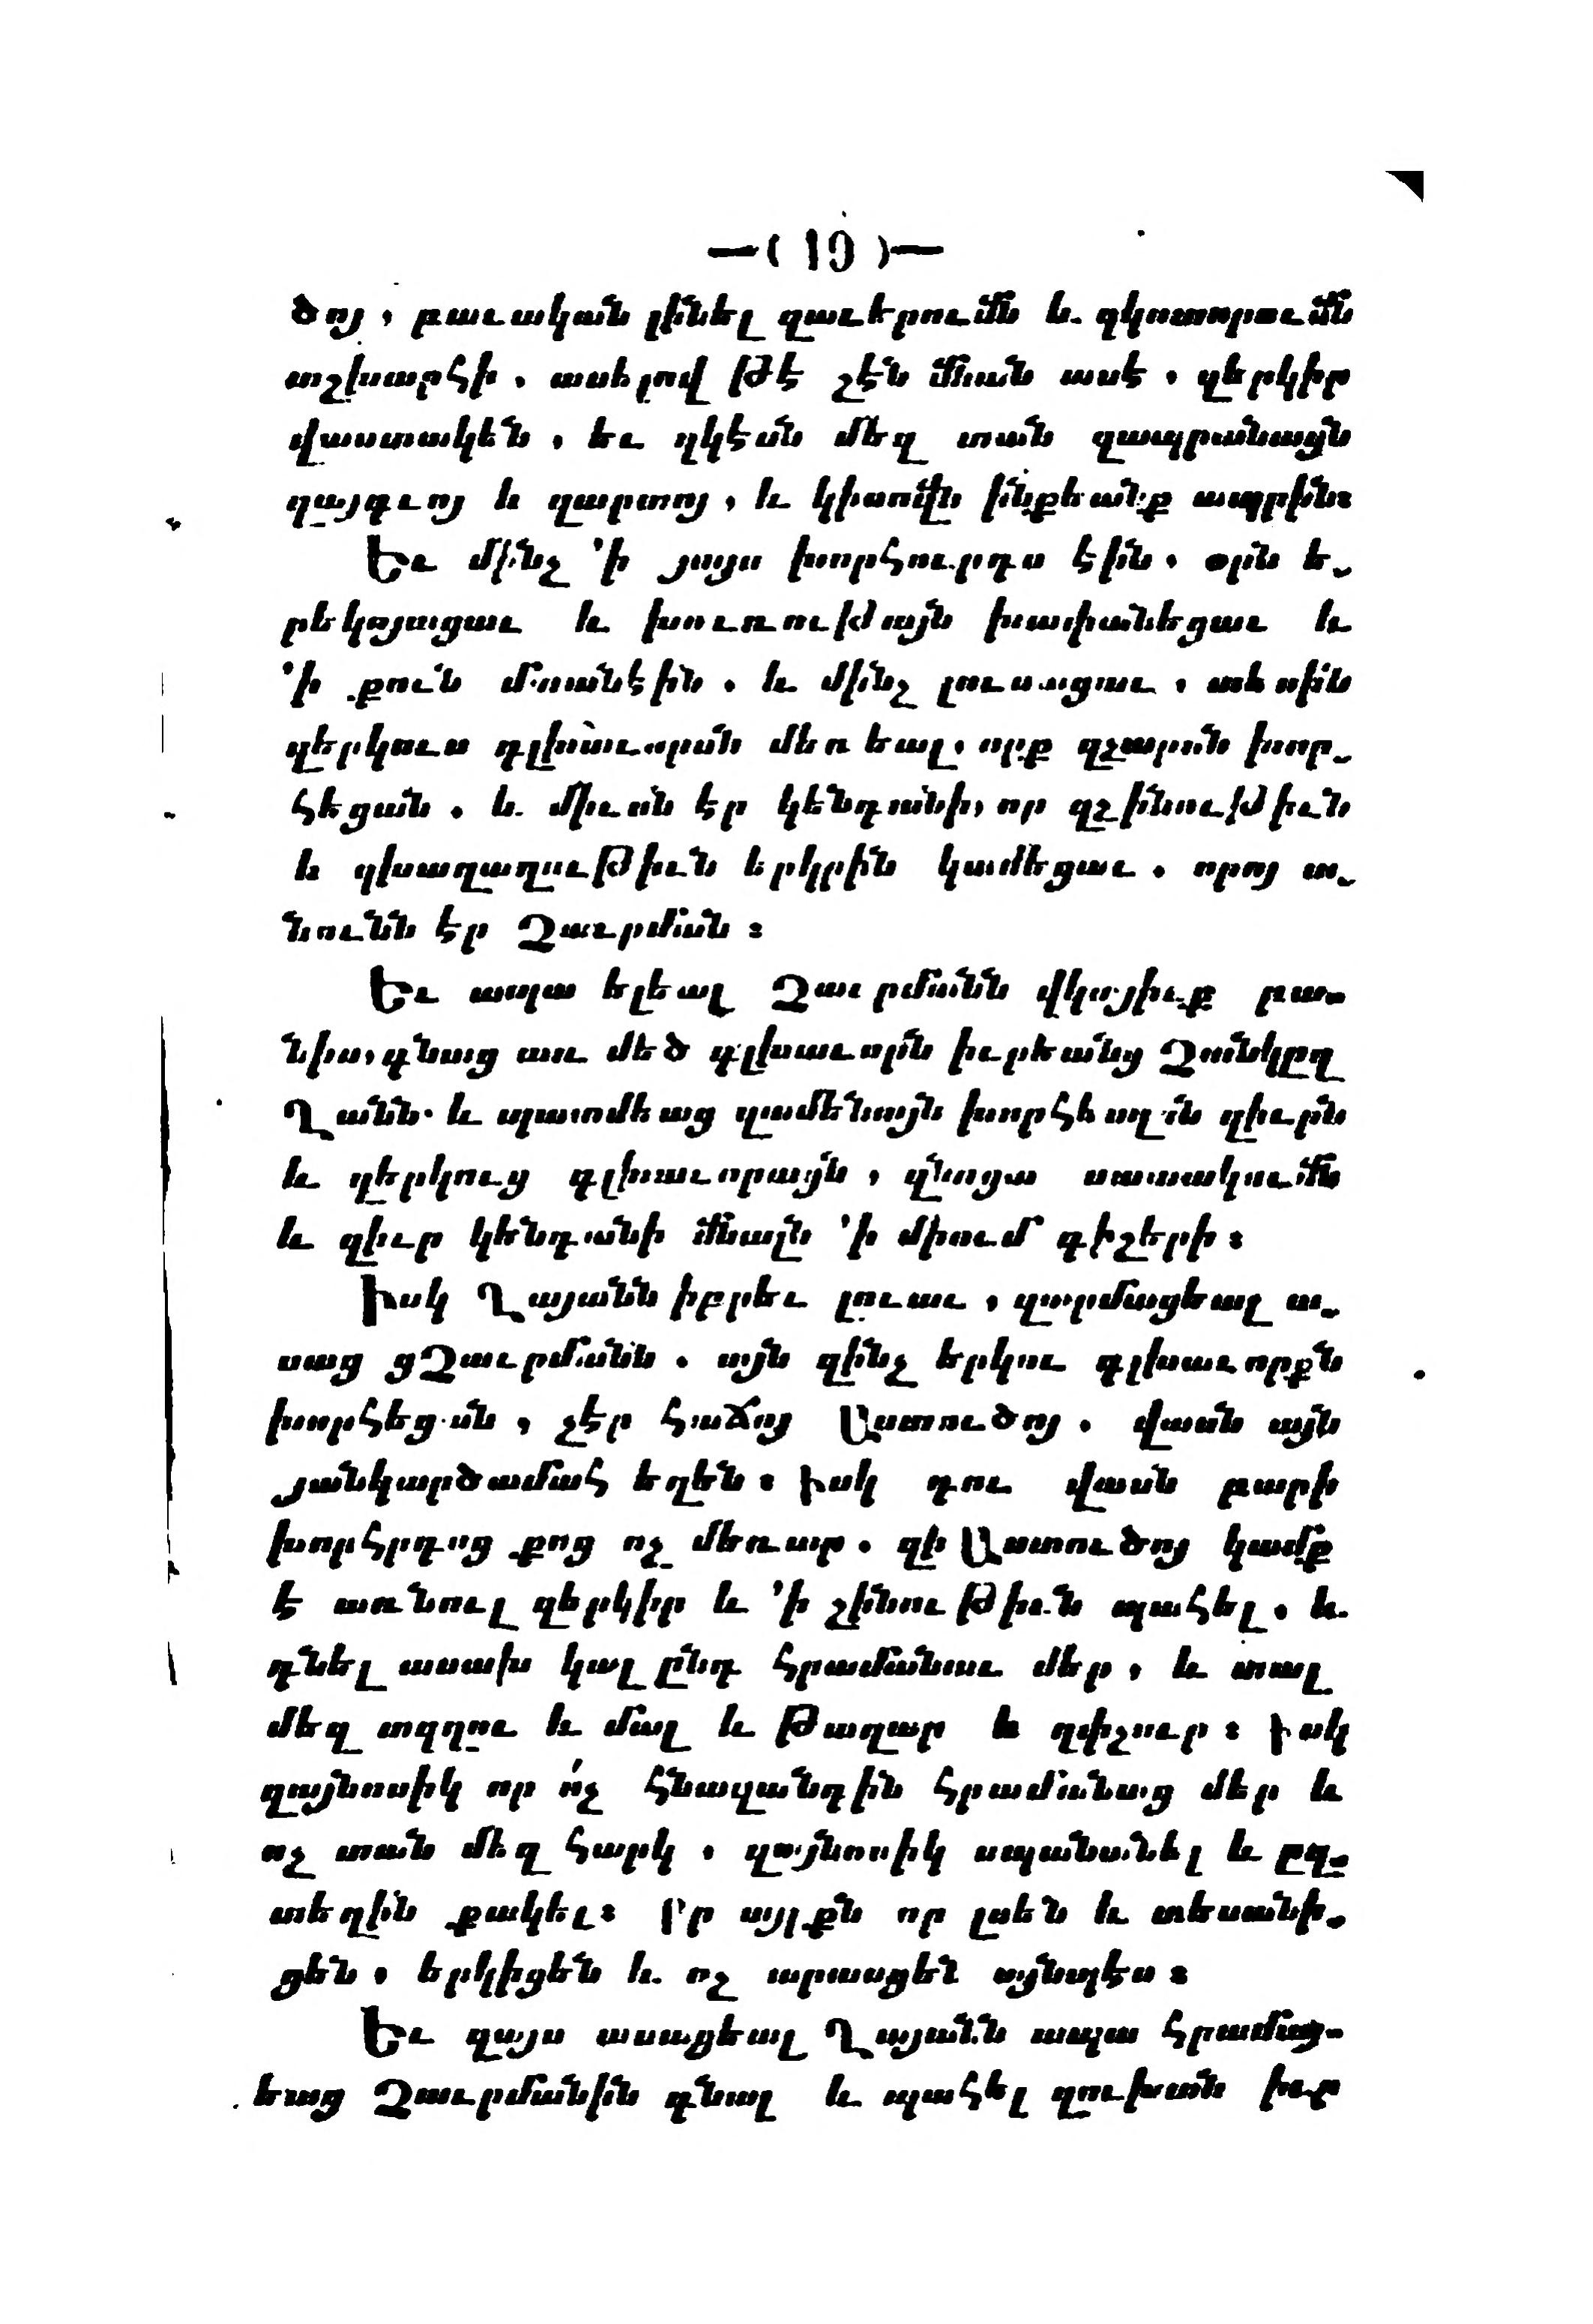 —( 19 )—
ծոյ, բաւական լինել զաւերումն և զկոտորումն
աշխարհի, ասելով թէ շէն մնան ասէ, զերկիր
վաստակեն, եւ զկէսն մեզ տան զապրանացն
զայգւոյ և զարտոյ, և կիսովն ինքեանք ապրին։
Եւ մինչ ՚ի յայս խորհուրդս էին. օրն ե֊
րեկոյացաւ և խուռութայն խափանեցաւ և
՚ի քուն մտանէին. և մինչ լուսացաւ, տեսին
զերկուս գլխաւորսն մեռեալ. որք զչարսն խոր֊
հեցան. և միւսն էր կենդանի, որ զշինութիւն
և զխաղաղութիւն երկրին կամեցաւ. որոյ ա֊
նունն էր Չաւրման։
Եւ ապա ելեալ Չաւրմանն վկայիւք բա֊
նիս, գնաց առ մեծ գլխաւորն իւրեանց Չանկըղ
Ղանն. և պատմեաց զամենայն խորհեալն զիւրն
և զերկուց գլխաւորացն, զնոցա սատակումն
և զիւր կենդանի մնալն ՚ի միում գիշերի։
Իսկ Ղայանն իբրեւ լուաւ, զարմացեալ ա֊
սաց ցՉաւրմանն. այն զինչ երկու գլխաւորքն
խորհեցան, չէր հաճոյ Աստուծոյ. վասն այն
յանկարծամահ եղեն։ Իսկ դու վասն բարի
խորհրդոց քոց ոչ մեռար. զի Աստուծոյ կամք
է առնուլ զերկիր և ՚ի շինութիւն պահել. և
դնել ասախ կալ ընդ հրամանաւ մեր, և տալ
մեզ տզղու և մալ և թաղար և ղփշուր։ Իսկ
զայնոսիկ որ ո՛չ հնազանդին հրամանաց մեր և
ոչ տան մեզ հարկ, զայնոսիկ սպանանել և ըզ֊
տեղին քակել։ Որ այլքն որ լսեն և տեսանի֊
ցեն, երկիցեն և ոչ արասցեն այնպէս։
Եւ զայս ասացեալ Ղայանն ապա հրամայ֊
եաց Չաւրմանին գնալ և պահել զուխտն իւր